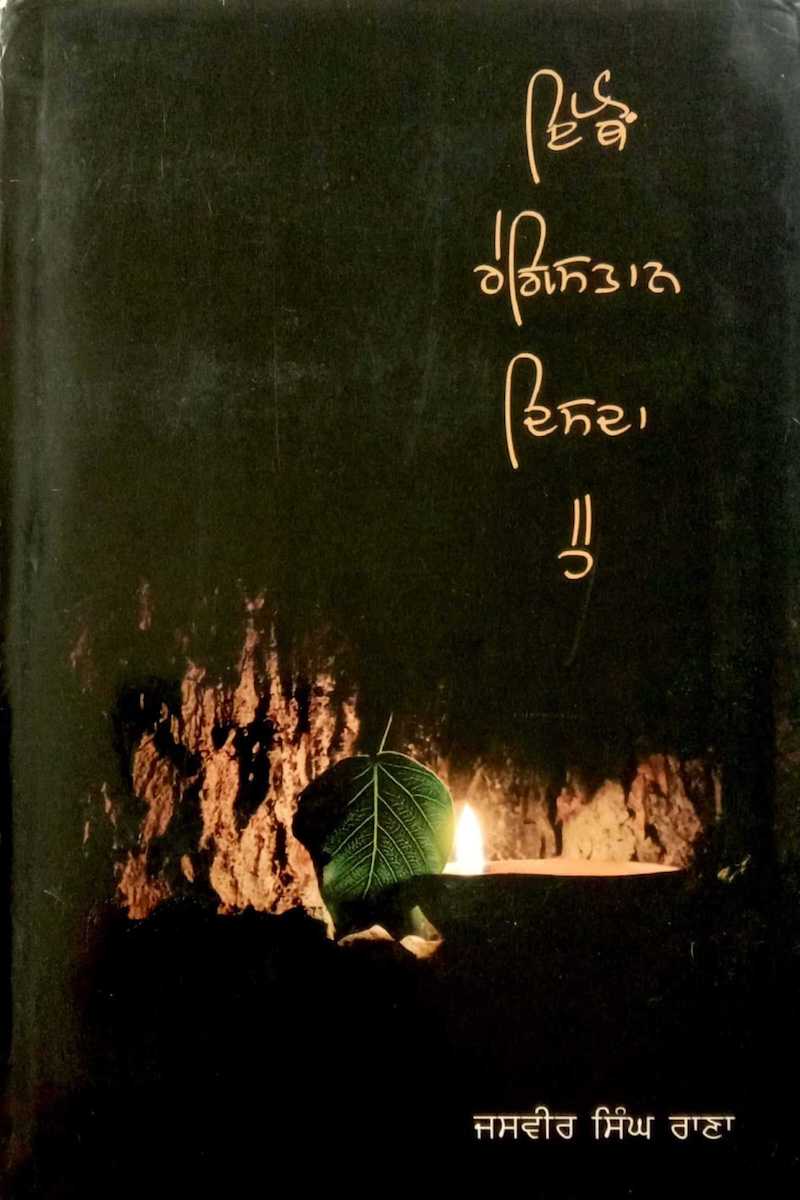 ਇੱਥੋਂ
ਰੇਗਿਸਤਾਨ
ਦਿਸਦਾ
ਹੈ
ਜਸਵੀਰ ਸਿੰਘ ਰਾਣਾ